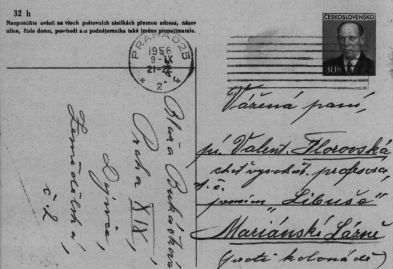 32 h
Nezapomeňte uvésti na všech poštovních zásilkách přesnou adresu, název
ulice, číslo domu, poschodí a u podnájemníka také jméno pronajímatele.
PRAHA 025
1956
9-IX
21-22
2
ČESKOSLOVENSKO
30h
Vážená paní,
pí. Valent. Florovská,
choť vysokošk. profesora,
t. č.
pensim "Libuše"
Mariánské Lázně
(proti kolonádě)
Praha XIX,
Dejvice,
Zemědělská,
č. 2